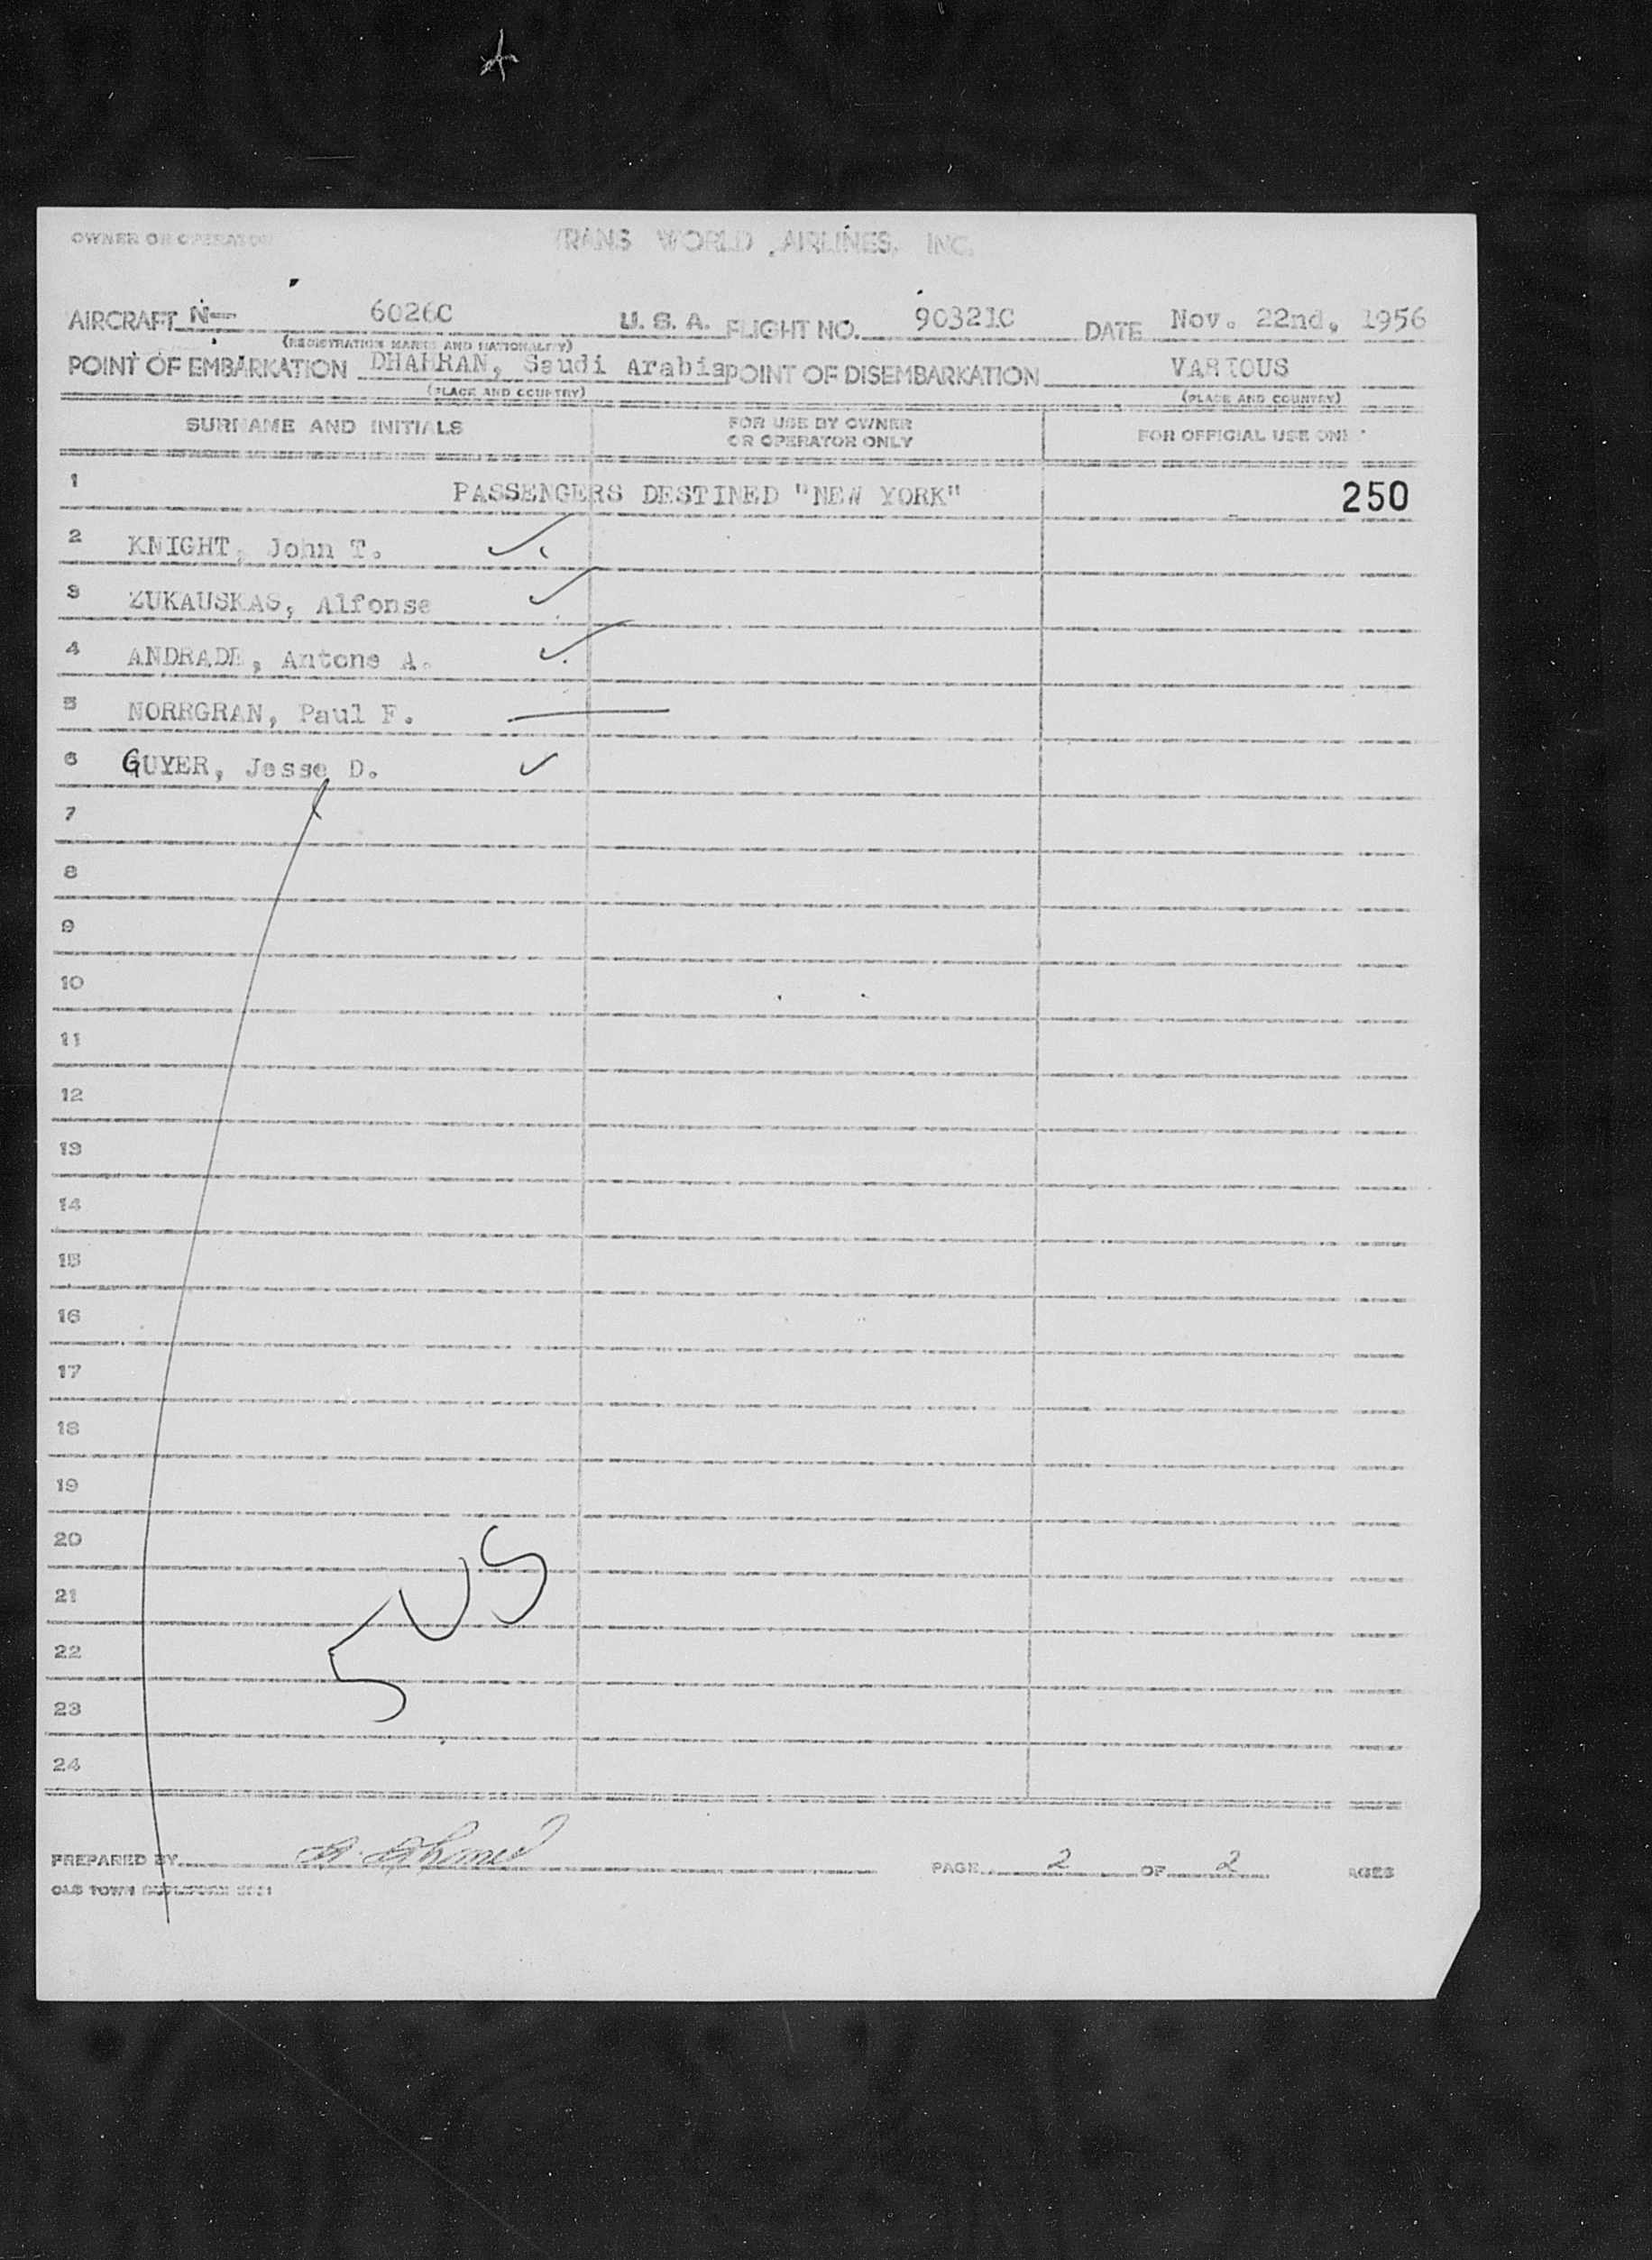 OWNER OR OPERATOR TRANS WORLD AIRLINES, INC.
AIRCRAFT N- 6026C U. S. A. FLIGHT NO. 90321C DATE Nov. 22nd, 1956
(REGISTRATION MARKS AND NATIONALITY)
POINT OF EMBARKATION DHAHRAN, Saudi Arabia POINT OF DISEMBARKATION VARIOUS
(PLACE AND COUNTRY) (PLACE AND COUNTRY)
SURNAME AND INITIALS FOR USE BY OWNER OR OPERATOR ONLY FOR OFFICIAL USE ONL
1 PASSENGERS DESTINED "NEW YORK" 250
2 KNIGHT, John T.
3 ZUKAUSKAS, Alfonse
4 ANDRADE, Antone A.
5 NORRGRAN, Paul F.
6 GUYER, Jesse D.
7
8
9
10
11
12
13
14
15
16
17
18
19
20
21
22
23
24
5 US
PREPARED BY PAGE 2 OF 2 AGES
OLD TOWN